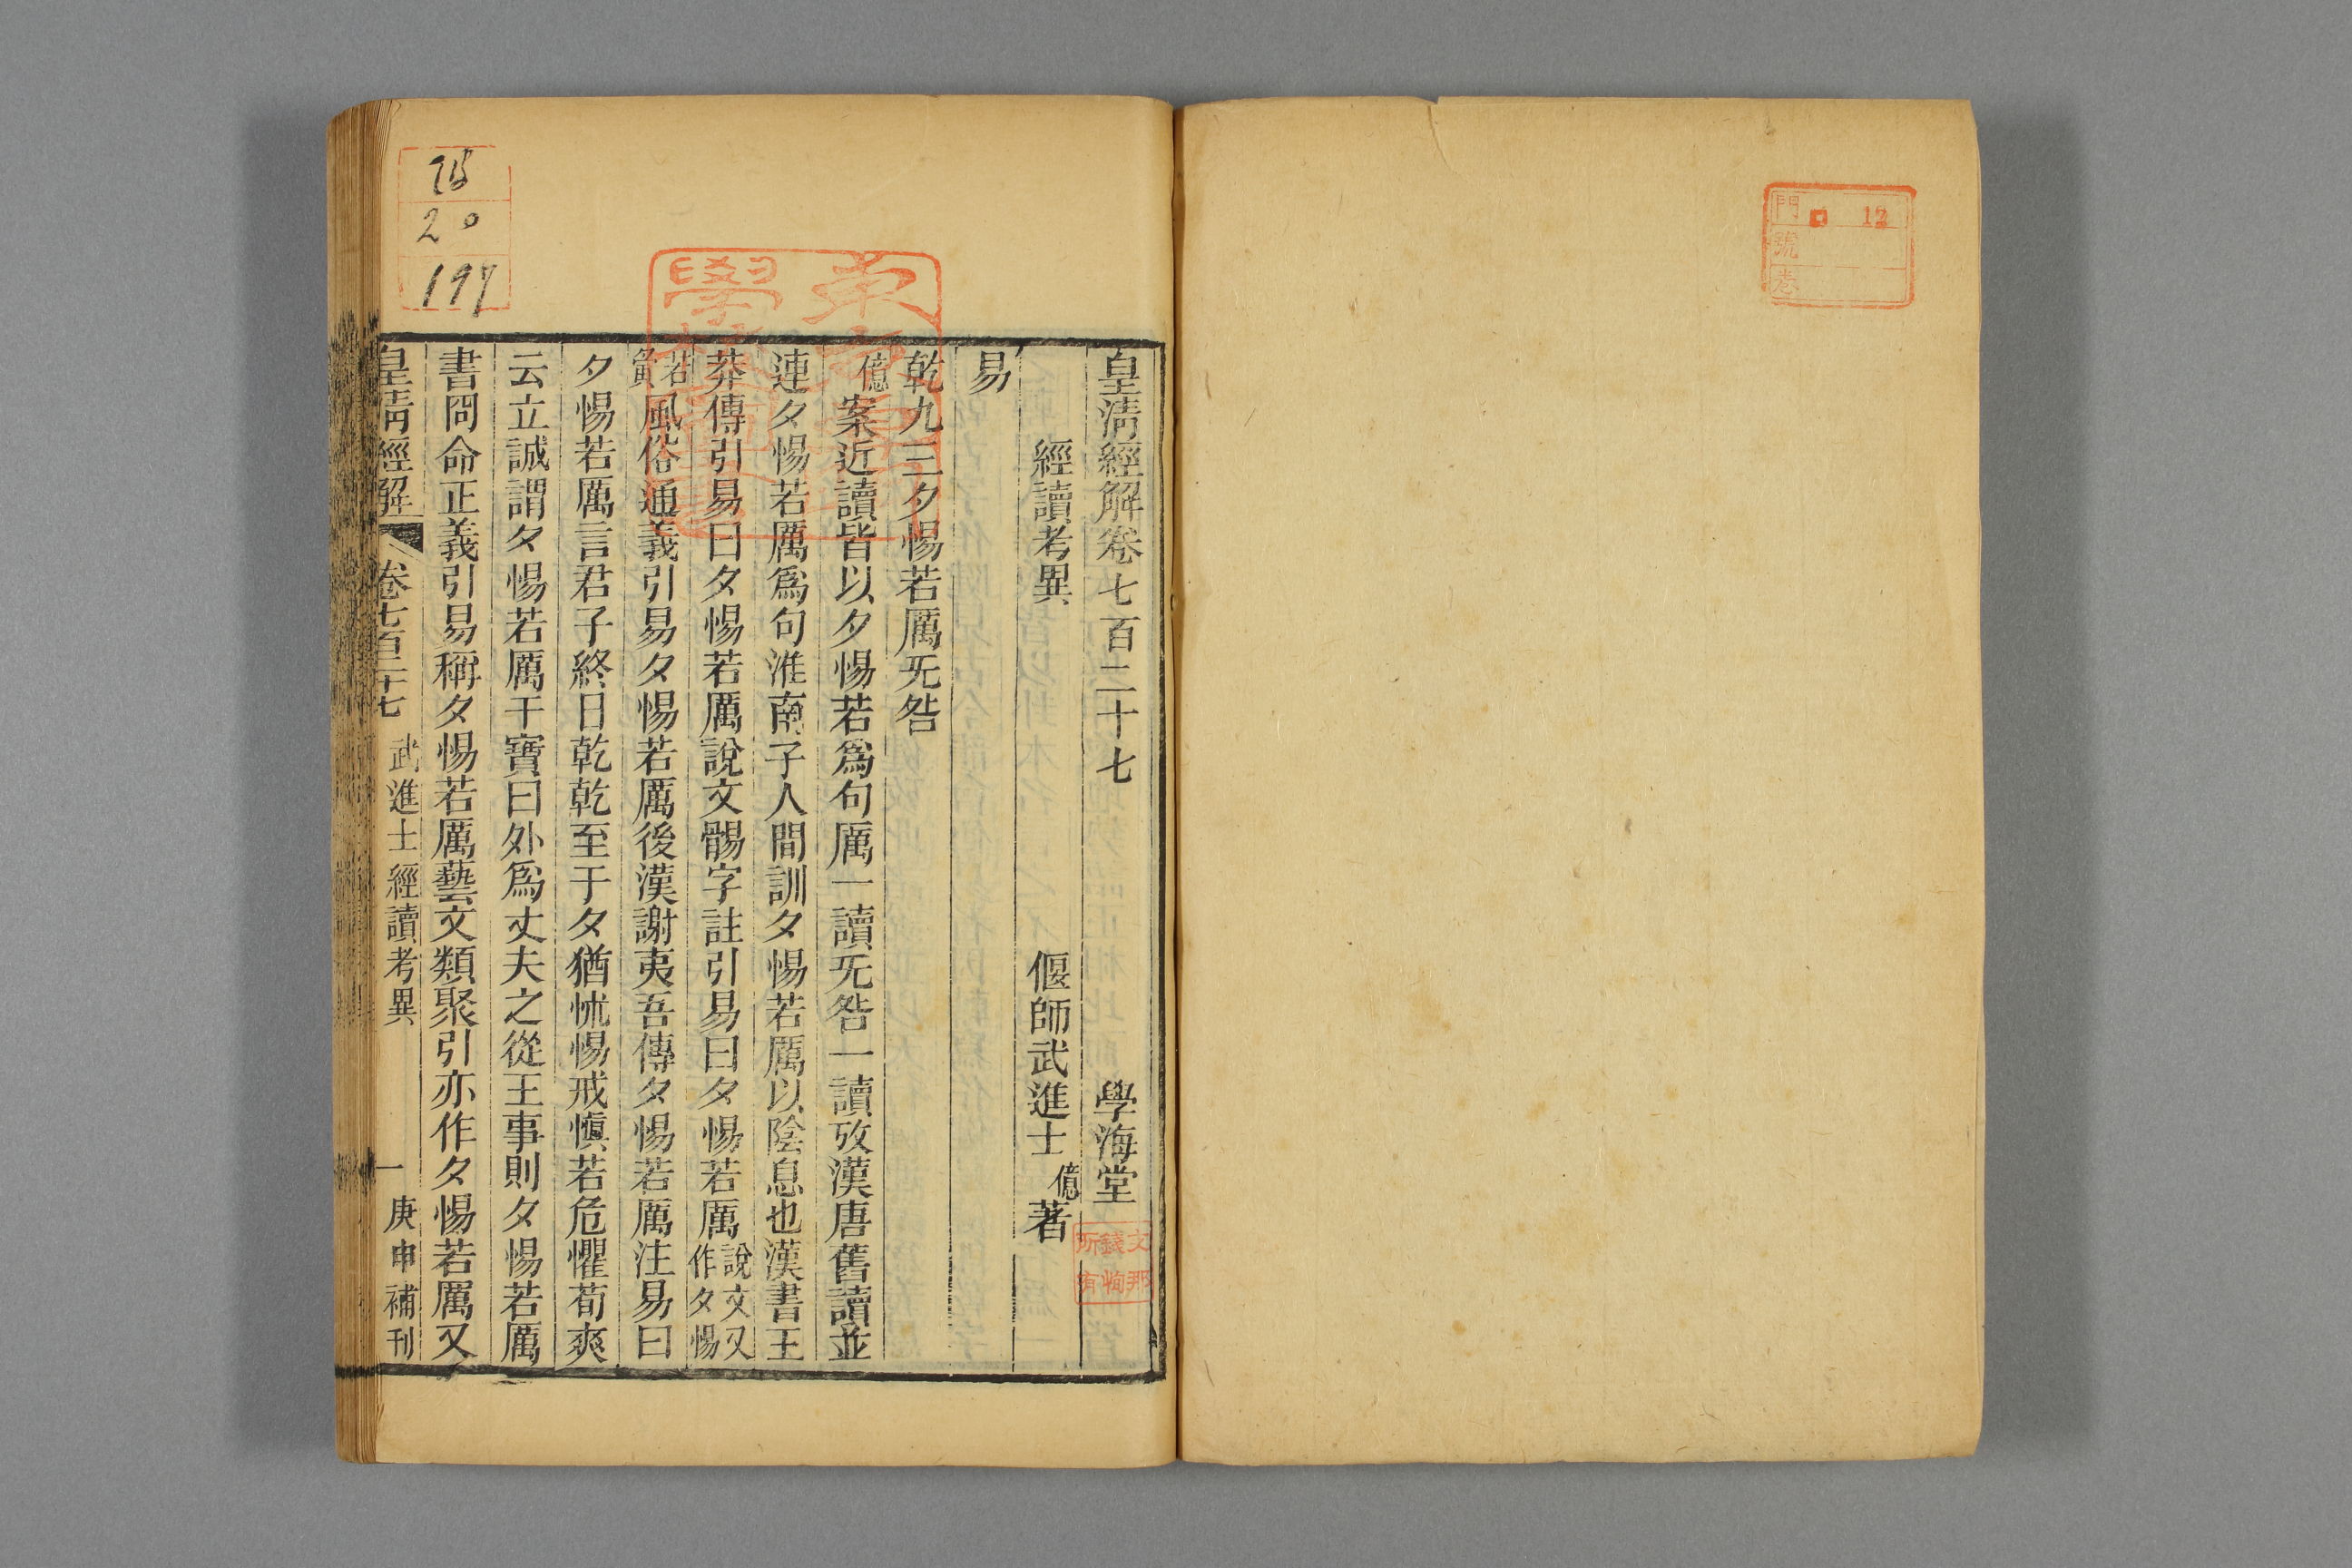 門 12
號
卷
皇淸經解卷七百二十七 學海堂
經讀考異 偃師武進士億著
易
乾九三夕惕若厲无咎
億案近讀皆以夕惕若爲句厲一讀无咎一讀攷漢唐舊讀並
連夕惕若厲爲句淮南子人間訓夕惕若厲以陰息也漢書王
莽傳引易曰夕惕若厲說文骸字註引易曰夕惕若厲說文又作夕惕
若夤風俗通義引易夕惕若厲後漢謝夷吾傳夕惕若厲注易曰
夕惕若厲言君子終日乾乾至于夕猶怵惕戒愼若危懼荀爽
云立誠謂夕惕若厲干寶曰外爲丈夫之從王事則夕惕若厲
書冏命正義引易稱夕惕若厲藝文類聚引亦作夕惕若厲又
皇淸經解 卷七百二十七 武進士經讀考異 一 庚申補刊
20
197